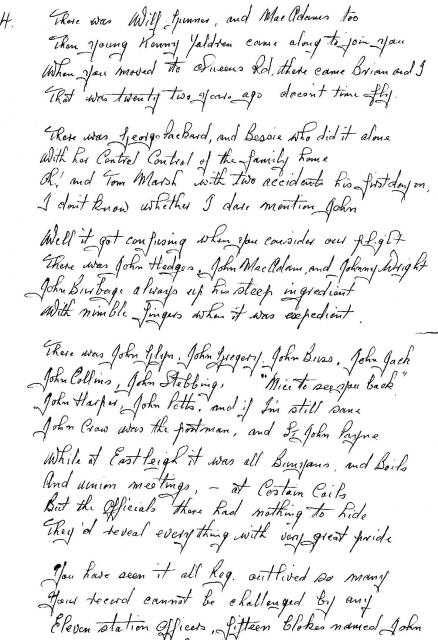 4.
There was Wilf Gunner, and MacAdams too
Then young Kenny Yaldren came along to join you
When you moved to Queens Rd, there came Brian and I
That was twenty two years ago doesn't time fly.
There was George Packard, and Bessie who did it alone
With her Control Control of the family home
Oh! and Tom Marsh with two accidents his first day on,
I don't know whether I dare mention John
Well it got confusing when you consider our plight
There was John Hedges, John MacAdam, and Johnny Wright
John Burbage always up his steep ingredient
With nimble fingers when it was expedient.
There was John Glyn, John Gregory, John Buss, John Jack
John Collins, John Stebbing, "Nice to see you back"
John Harper, John Petts, and if I'm still sane
John Craw was the postman, and St John Payne
While at Eastleigh it was all Bunyans and Boils
And union meetings, - at Costain Coils
But the officials there had nothing to hide
They'd reveal everything with very great pride
You have seen it all Reg. outlived so many
Your record cannot be challenged by any
Eleven station officers, fifteen blokes named John